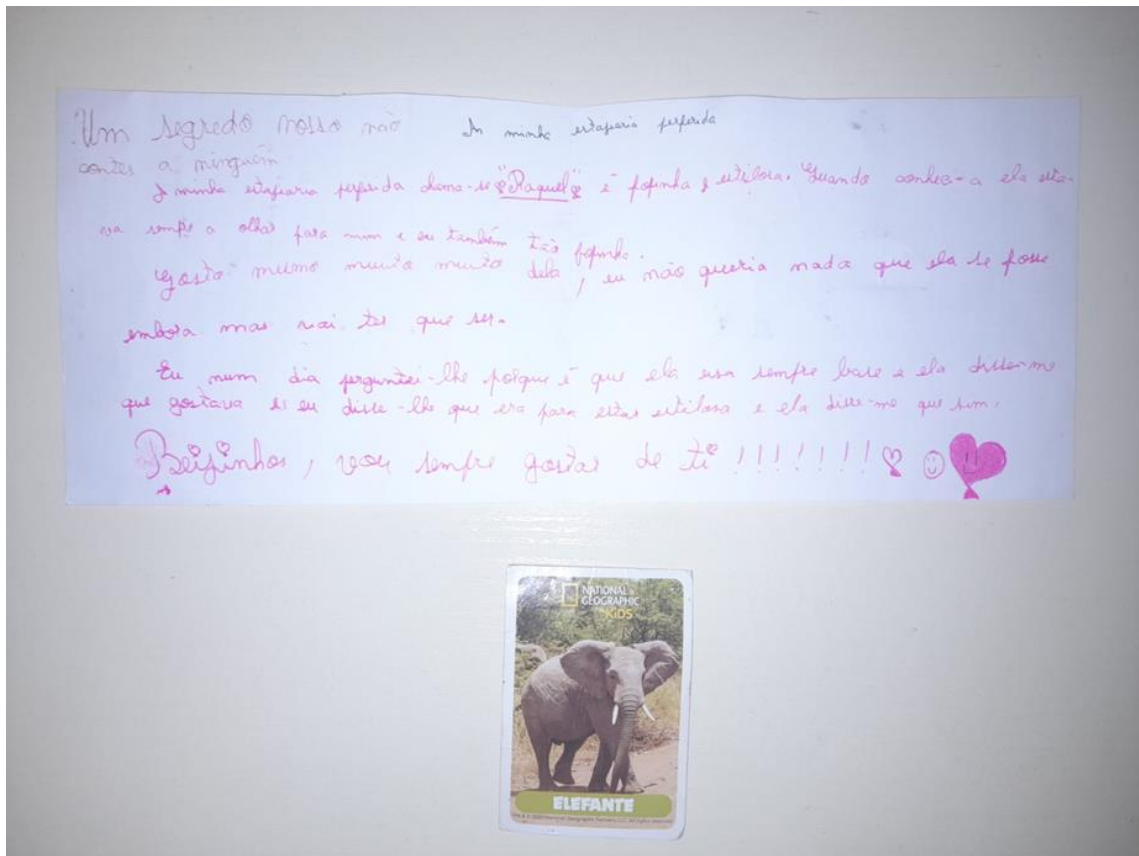 Um segredo nosso não
contes a ninguém
A minha estajiaria perferida
A minha estajiaria perferida chama-se "Raquel" é fofinha e estilosa. Quando conhec-a ela esta-
va sempre a olhar para mim e eu também tão fofinha.
Gosto mesmo muito muito dela, eu não queria nada que ela se fosse
embora mas vai ter que ser.
Eu num dia perguntei-lhe porque é que ela usa sempre base e ela disse-me
que gostava e eu disse-lhe que era para estar estilosa e ela disse-me que sim.
Beijinhos, vou sempre gostar de ti !!!!!!!!
NATIONAL
GEOGRAPHIC
KiDS
ELEFANTE